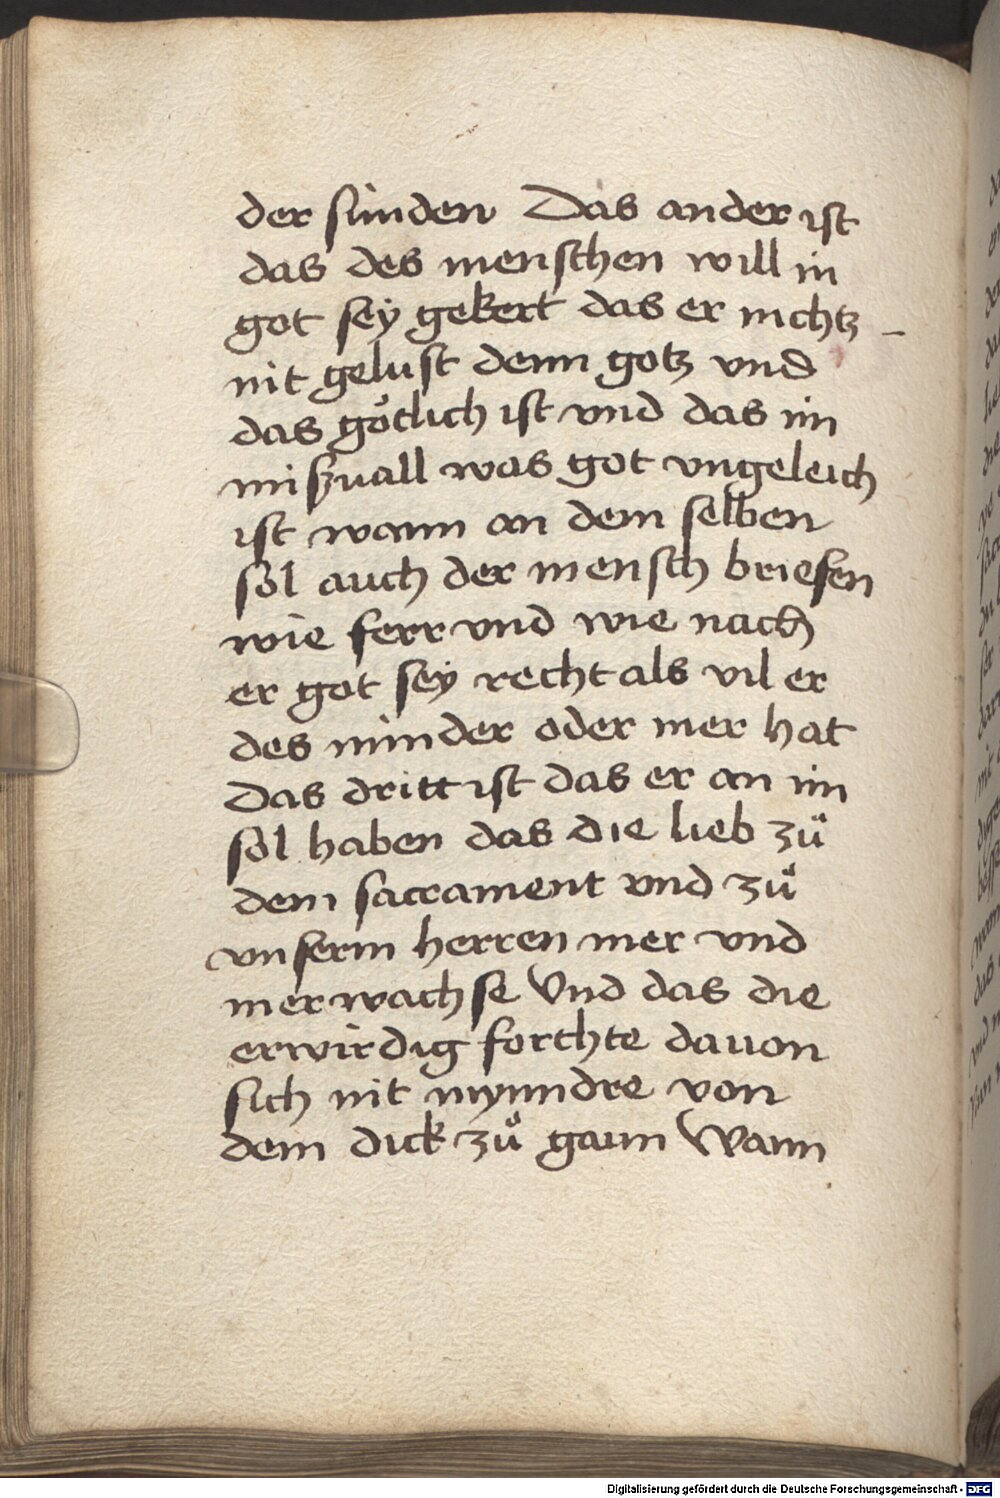 der sunden Das ander ist
das des menschen will in
got sey gekert das er nichtz –
nit gelust denn gotz vnd
das gótlich ist vnd das im
miszuall was got vngeleich
ist wann an dem selben
sol auch der mensch briefen
wie ferr vnd wie nach
er got sey recht als vil er
des minder oder mer hat
Das dritt ist das er an im
sol haben das die lieb zů
dem sacrament vnd zů
vnserm herren mer vnd
mer wachse Vnd das die
erwirdig forchte dauon
sich nit mynndre von
dem dick zů gaun Wann
Digitalisierung gefördert durch die Deutsche Forschungsgemeinschaft - DFG